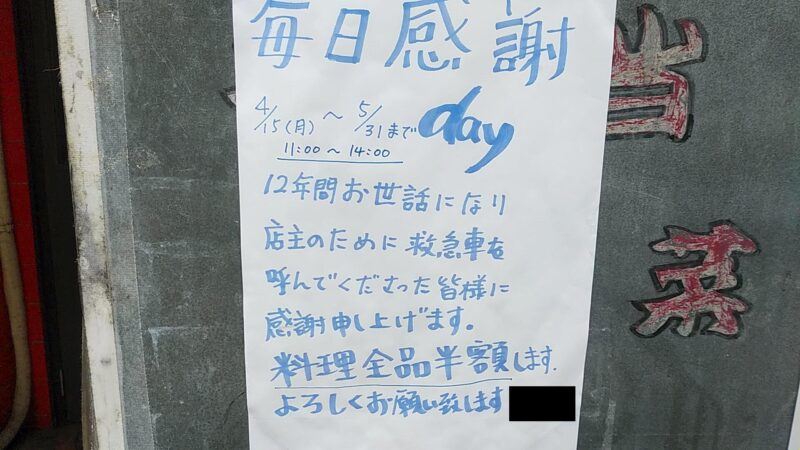 毎日感謝
day
4/15(月)～5/31まで
11:00～14:00
12年間お世話になり
店主のために救急車を
呼んでくださった皆様に
感謝申し上げます。
料理全品半額します.
よろしくお願い致します